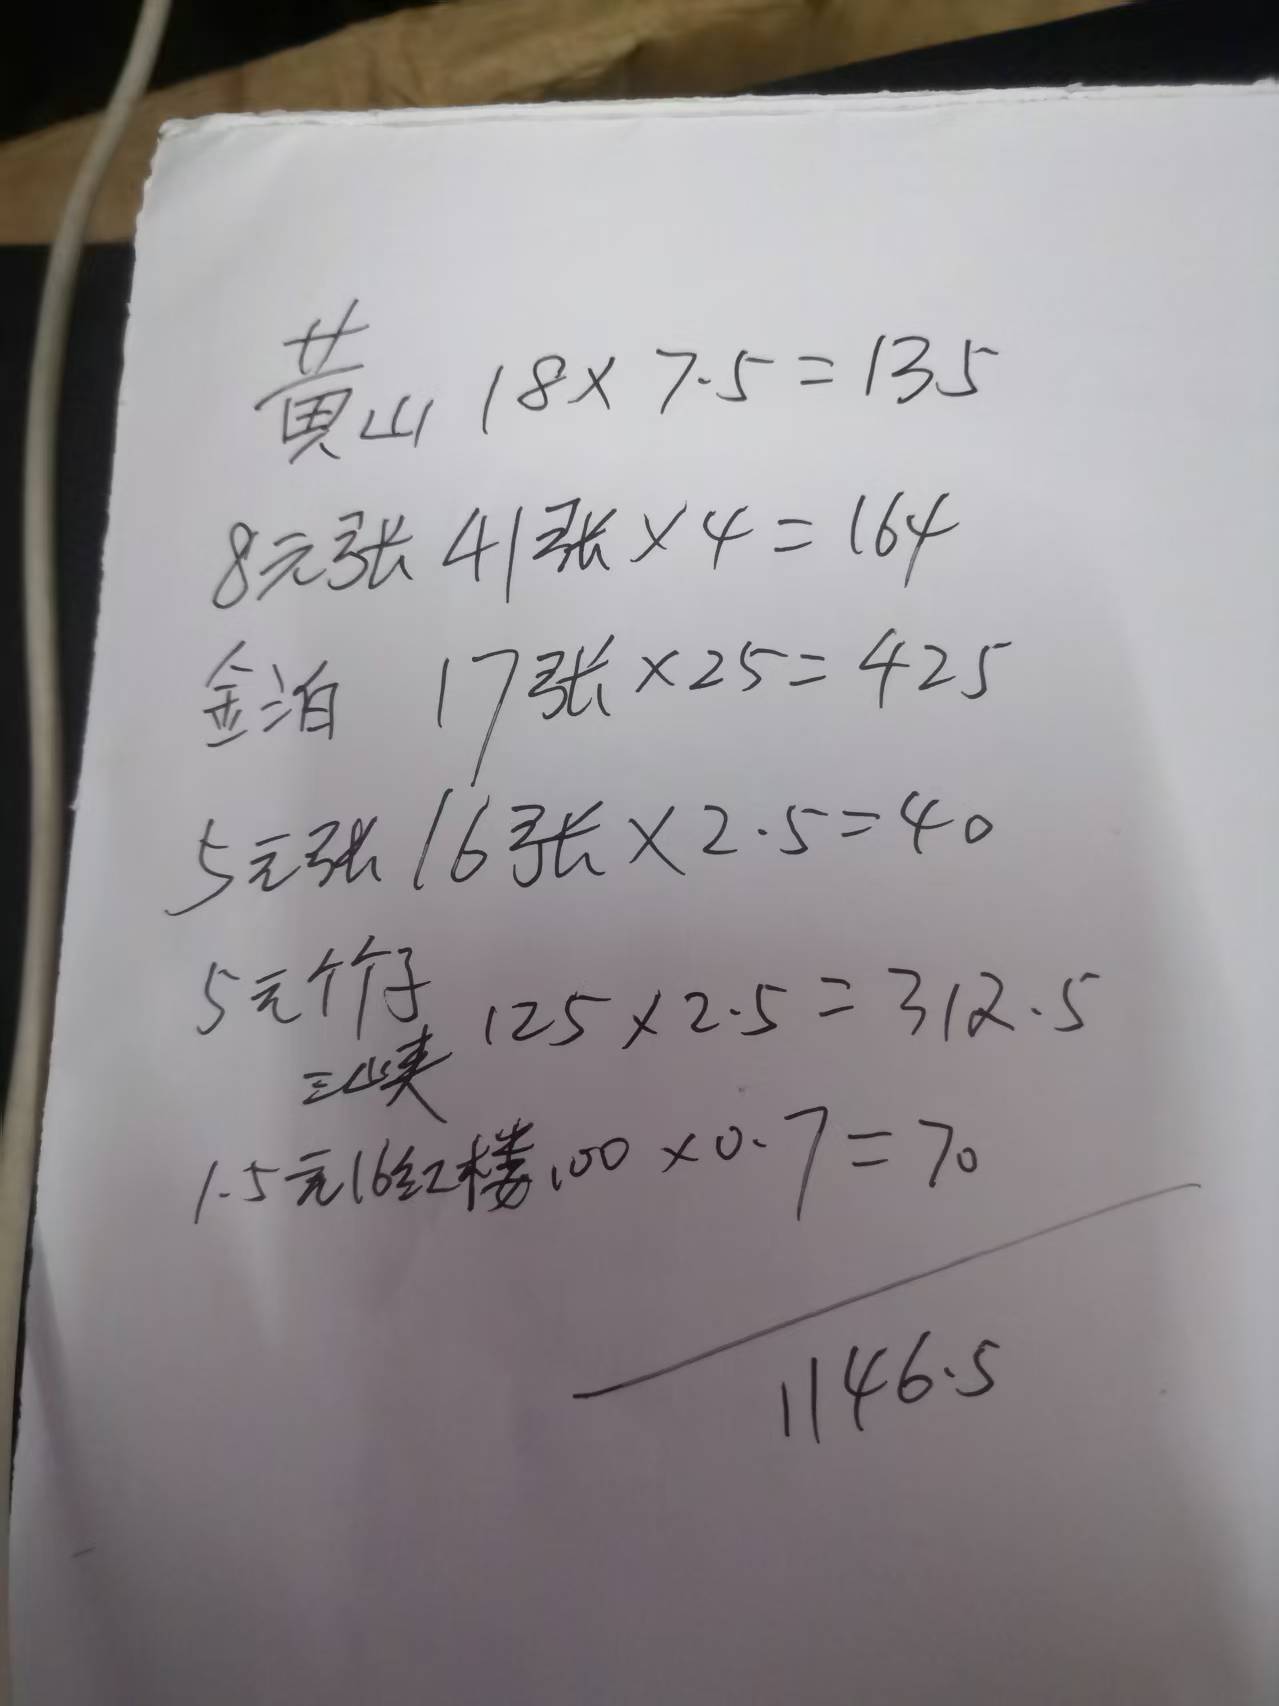 黄山 18×7.5=135
8元张 41张×4=164
金泊 17张×25=425
5元张 16张×2.5=40
5元竹子 125×2.5=312.5
三峡
1.5元16红楼100×0.7=70
1146.5